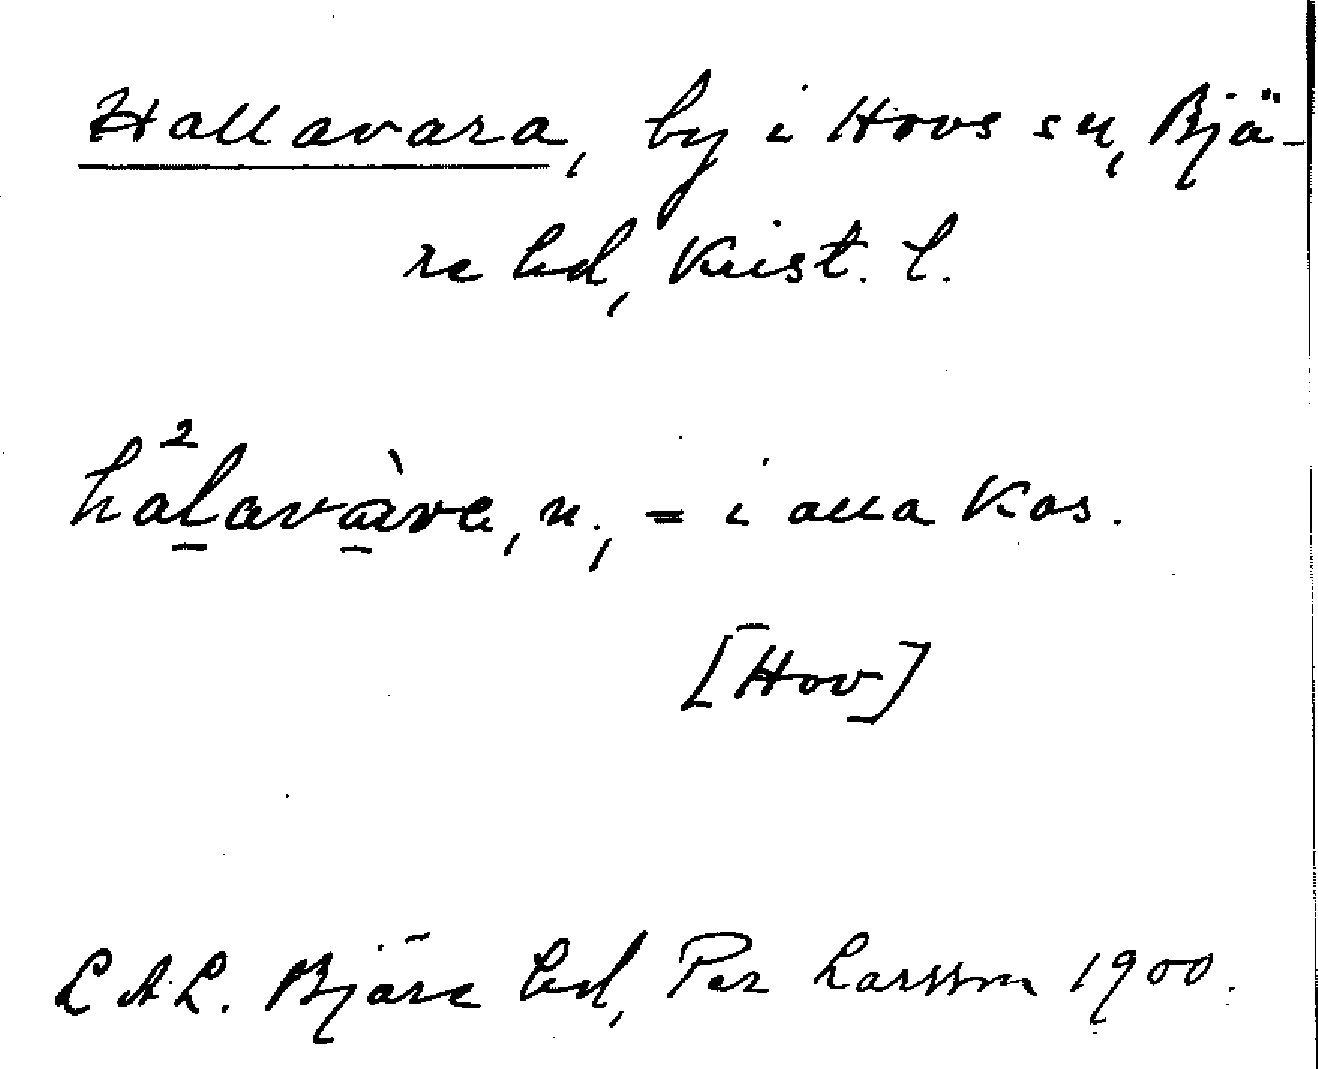 Hallavara, by i Hovs sn, Bjä-
re hd, Krist. l.
hal²avàra, n., = i alla kas.
[Hov]
L.A.L. Bjäre hd, Per Larsson 1900.